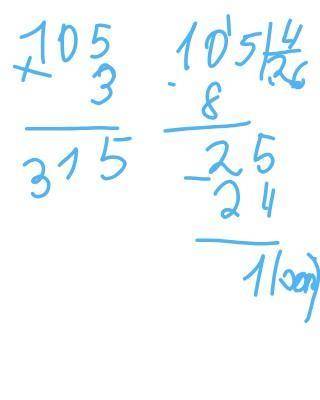 105
× 3
315
105 | 4
- 8 26
25
- 24
1 (ост)